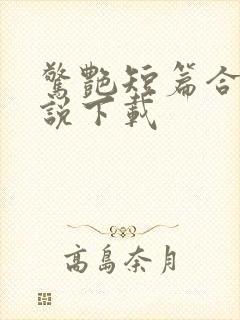 驚艷短篇合
說下載
高島奈月